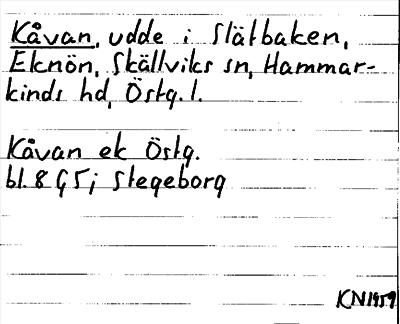 Kåvan, udde i Slätbaken,
Eknön, Skällviks sn, Hammar-
kinds hd, Östg. l.
Kåvan ek Östg.
bl. 8 G 5 i Stegeborg
KN1959